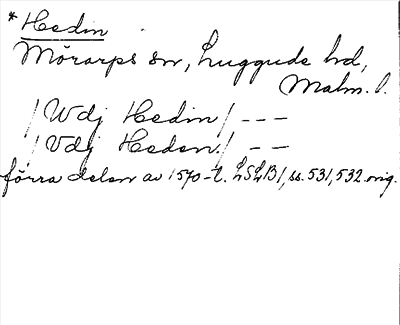 * Hedin
Mörarps sn, Luggude hd,
Malm. l.
/Wdj Hedin/ ---
/Vdj Heden/ --
förra delen av 1570-t. LSLB1, ss. 531, 532 orig.